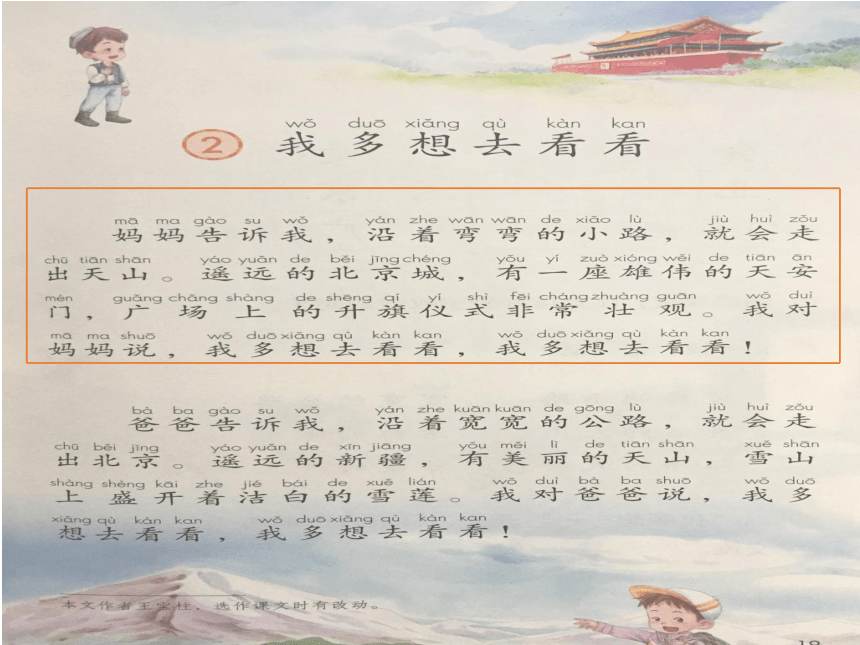 wǒ duō xiǎng qù kàn kan
2 我多想去看看
mā ma gào su wǒ yán zhe wān wān de xiǎo lù jiù huì zǒu
妈妈告诉我，沿着弯弯的小路，就会走
chū tiān shān yáo yuǎn de běi jīng chéng yǒu yí zuò xióng wěi de tiān ān
出天山。遥远的北京城，有一座雄伟的天安
mén guǎng chǎng shàng de shēng qí yí shì fēi cháng zhuàng guān wǒ duì
门，广场上的升旗仪式非常壮观。我对
mā ma shuō wǒ duō xiǎng qù kàn kan wǒ duō xiǎng qù kàn kan
妈妈说，我多想去看看，我多想去看看！
bà ba gào su wǒ yán zhe kuān kuān de gōng lù jiù huì zǒu
爸爸告诉我，沿着宽宽的公路，就会走
chū běi jīng yáo yuǎn de xīn jiāng yǒu měi lì de tiān shān xuě shān
出北京。遥远的新疆，有美丽的天山，雪山
shàng shèng kāi zhe jié bái de xuě lián wǒ duì bà ba shuō wǒ duō
上盛开着洁白的雪莲。我对爸爸说，我多
xiǎng qù kàn kan wǒ duō xiǎng qù kàn kan
想去看看，我多想去看看！
本文作者王宝柱，选作课文时有改动。